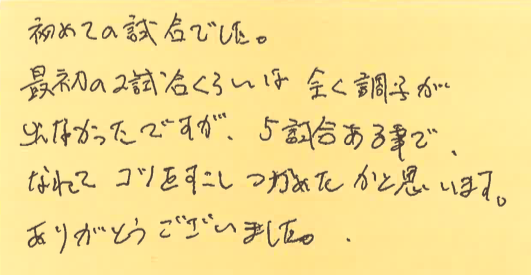 初めての試合でした。
最初の2試合くらいは 全く調子が
出なかったですが、5試合ある事で、
なれて コツをすこし つかめた かと思います。
ありがとうございました。